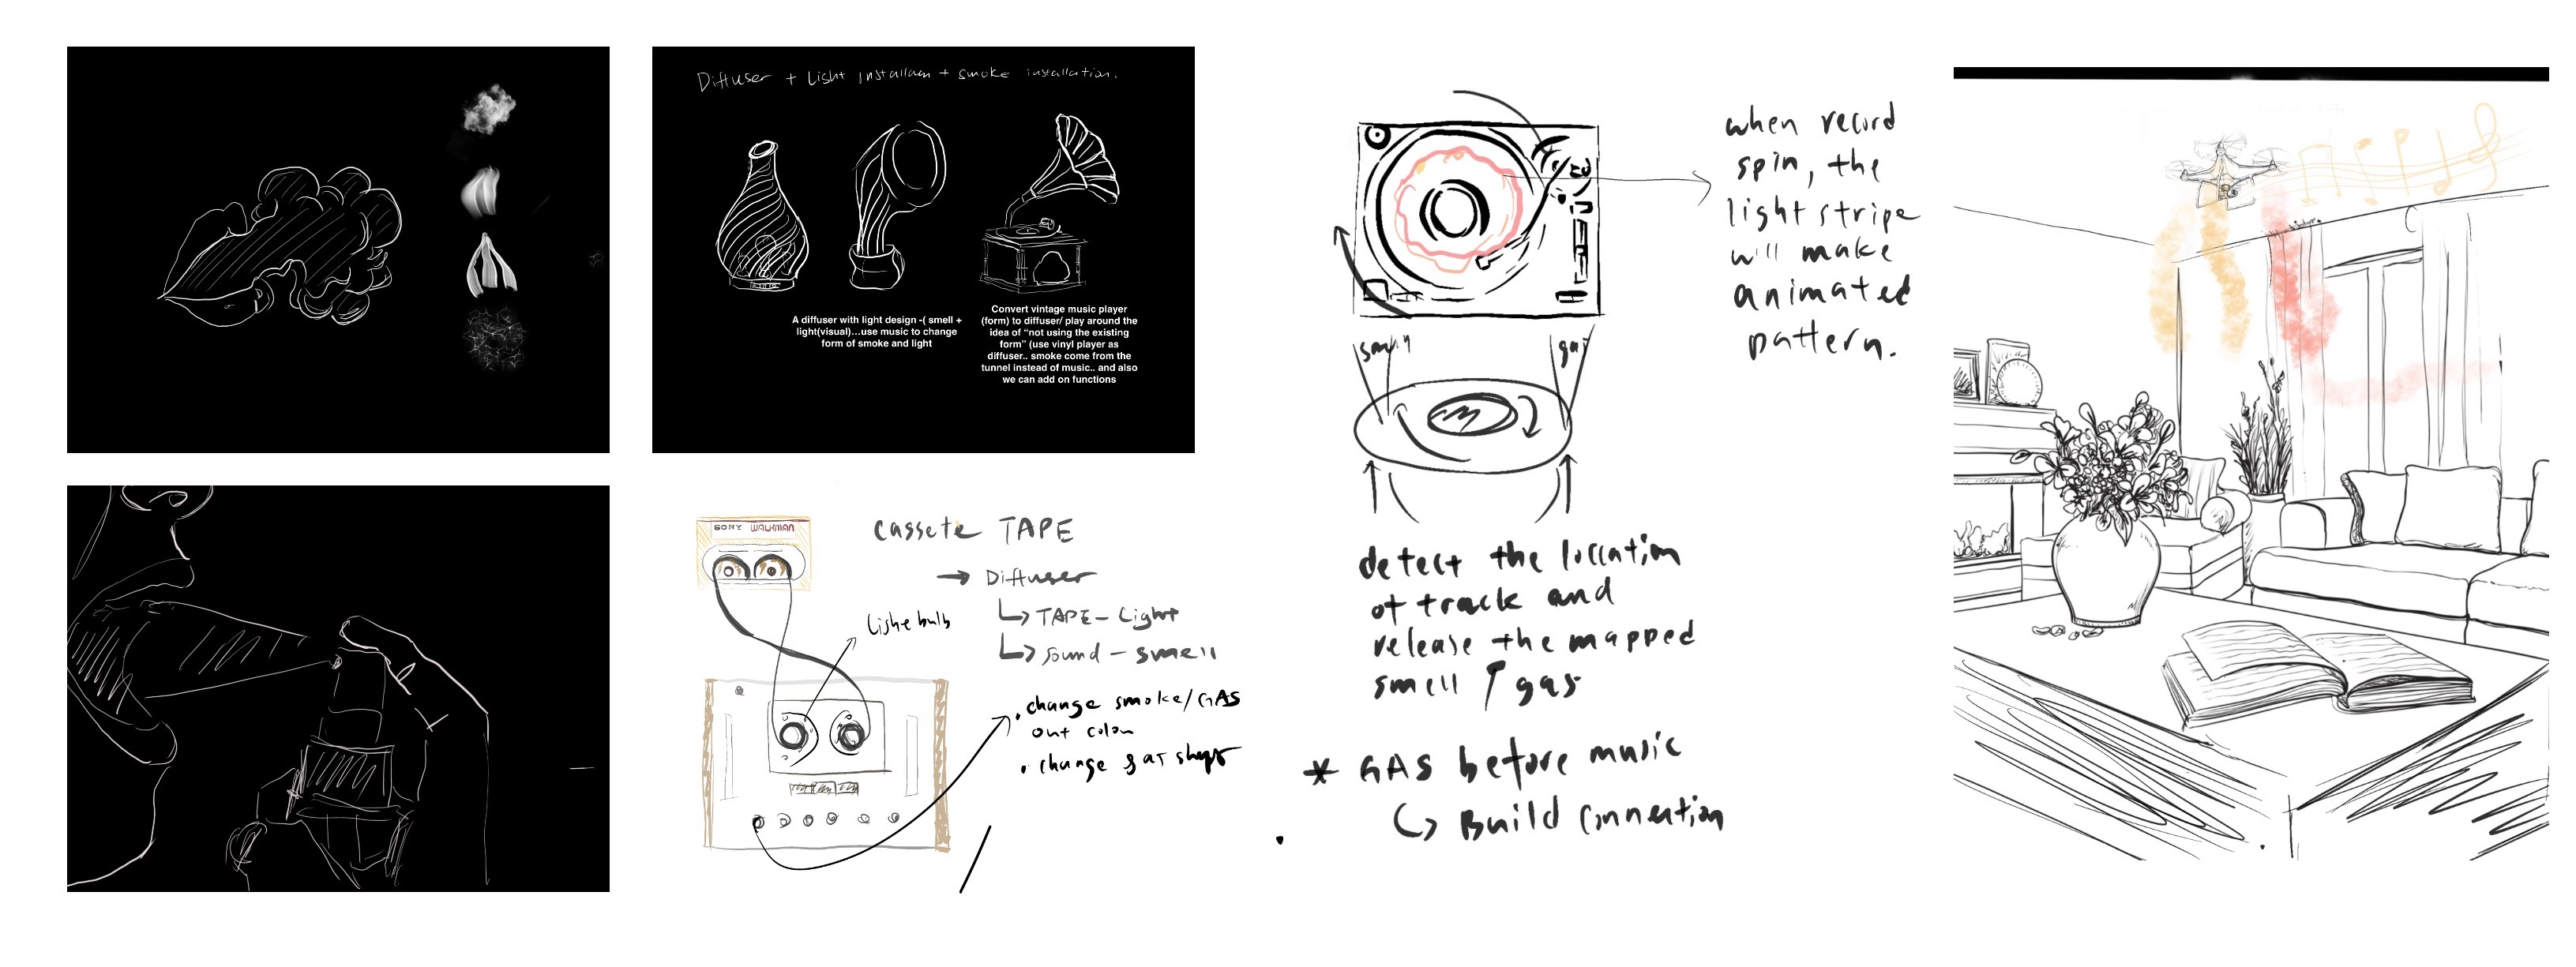 Diffuser + Light Installawn + smoke installation.
A diffuser with light design -( smell +
light(visual)...use music to change
form of smoke and light
Convert vintage music player
(form) to diffuser/ play around the
idea of “not using the existing
form” (use vinyl player as
diffuser.. smoke come from the
tunnel instead of music.. and also
we can add on functions
SONY WALKMAN
cassete TAPE
→ Diffuser
↳ TAPE – Light
↳ sound – smell
lighe bulb
• change smoke/GAS
out color
• change gas shape
when record
spin, the
light stripe
will make
animated
pattern.
gas
detect the loccation
of track and
release the mapped
smell / gas
* GAS before music
↳ Build connection